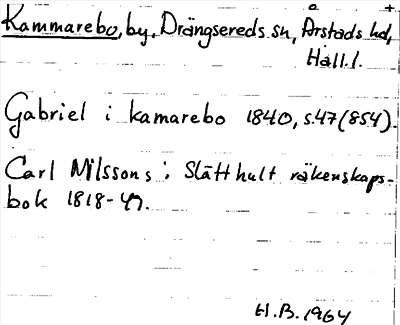 Kammarebo, by, Drängsereds sn, Årstads hd,
Hall. l.
Gabriel i kamarebo 1840, s.47 (854).
Carl Nilssons i Slätthult räkenskaps-
bok 1818-47.
H.B. 1964